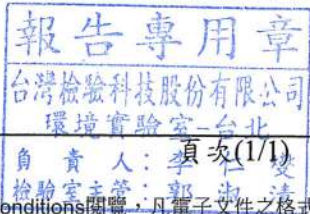 報告專用章
台灣檢驗科技股份有限公司
環境實驗室-台北
頁次(1/1)
負責人：李仁燮
檢驗室主管：郭淑清
onditions閱覽，凡電子文件之格式